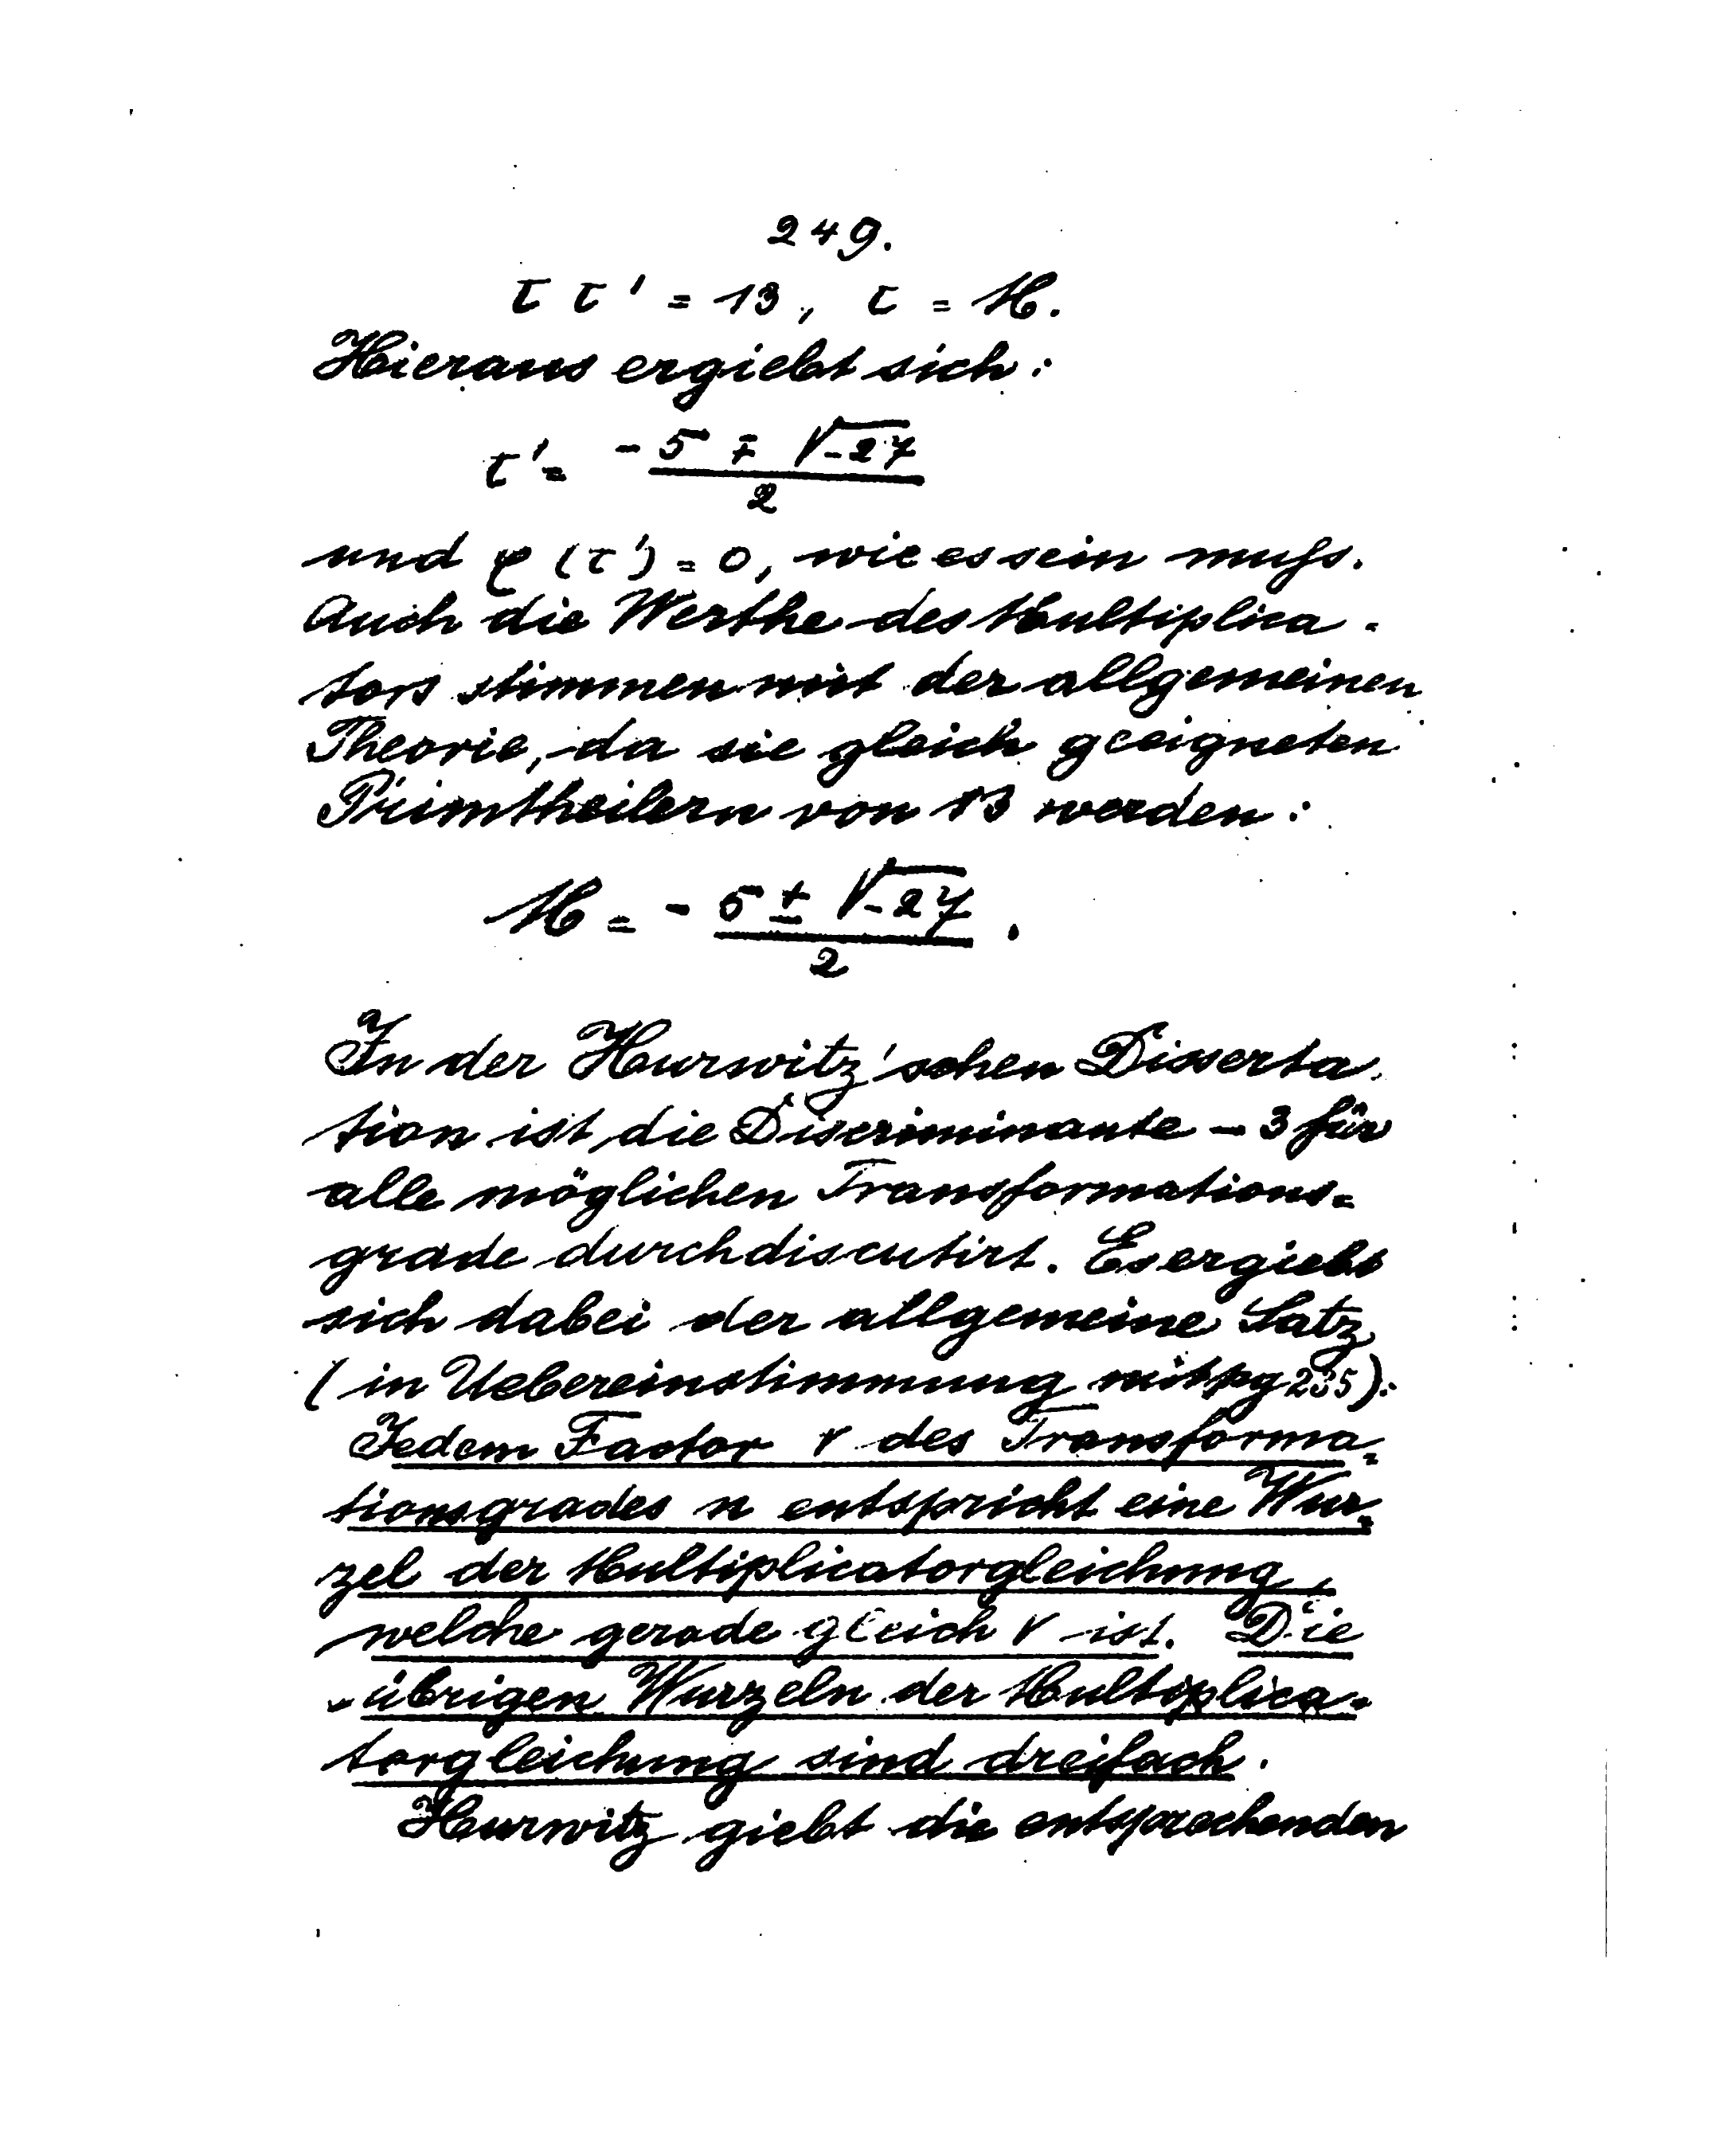 249.
τ τ' = 13, τ = M.
Hieraus ergiebt sich:
τ' = -5 ∓ √-27 / 2
und φ(τ') = 0, wie es sein muſs.
Auch die Werthe des Multiplica-
tors stimmen mit der allgemeinen
Theorie, da sie gleich geeigneten
Primtheilern von 13 werden:
M = - 5 ± √-27 / 2 .
In der Hurwitz'schen Disserta-
tion ist die Discriminante - 3 für
alle möglichen Transformations=
grade durchdiscutirt. Es ergiebt
sich dabei der allgemeine Satz
(in Uebereinstimmung mit pg 235):
Jedem Factor r des Transforma=
tionsgrades n entspricht eine Wur=
zel der Multiplicatorgleichung,
welche gerade gleich r ist. Die
übrigen Wurzeln der Multiplica=
torgleichung sind dreifach.
Hurwitz giebt die entsprechenden